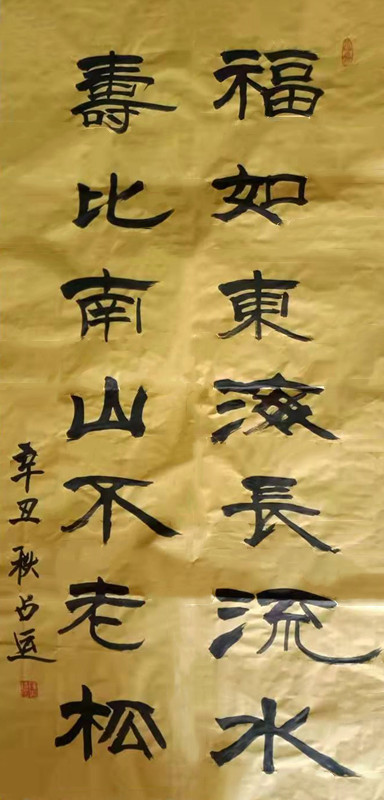 福如東海長流水
壽比南山不老松
辛丑秋占运